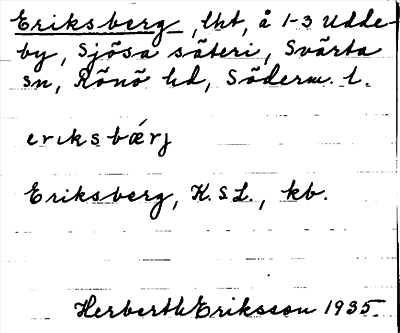 Eriksberg, lht, å 1-3 Udde-
by, Sjösa säteri, Svärta
sn, Rönö hd, Söderm. l.
eriksbǽrj
Eriksberg, K.S.L., kb.
Herberth Eriksson 1935.